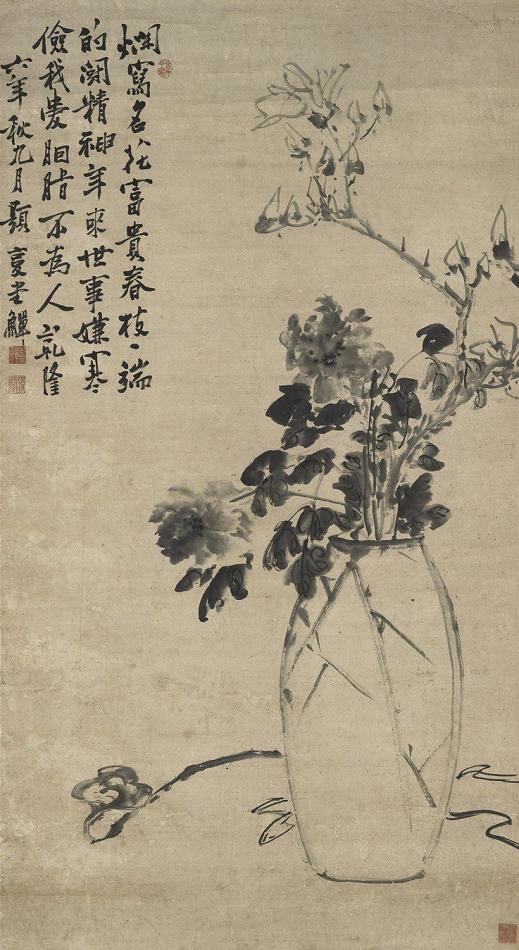 爛寫名花富貴春枝〻端
的鬪精神年來世事嫌寒
儉我愛胭脂不為人 乾隆
六年秋九月題 复堂鱓